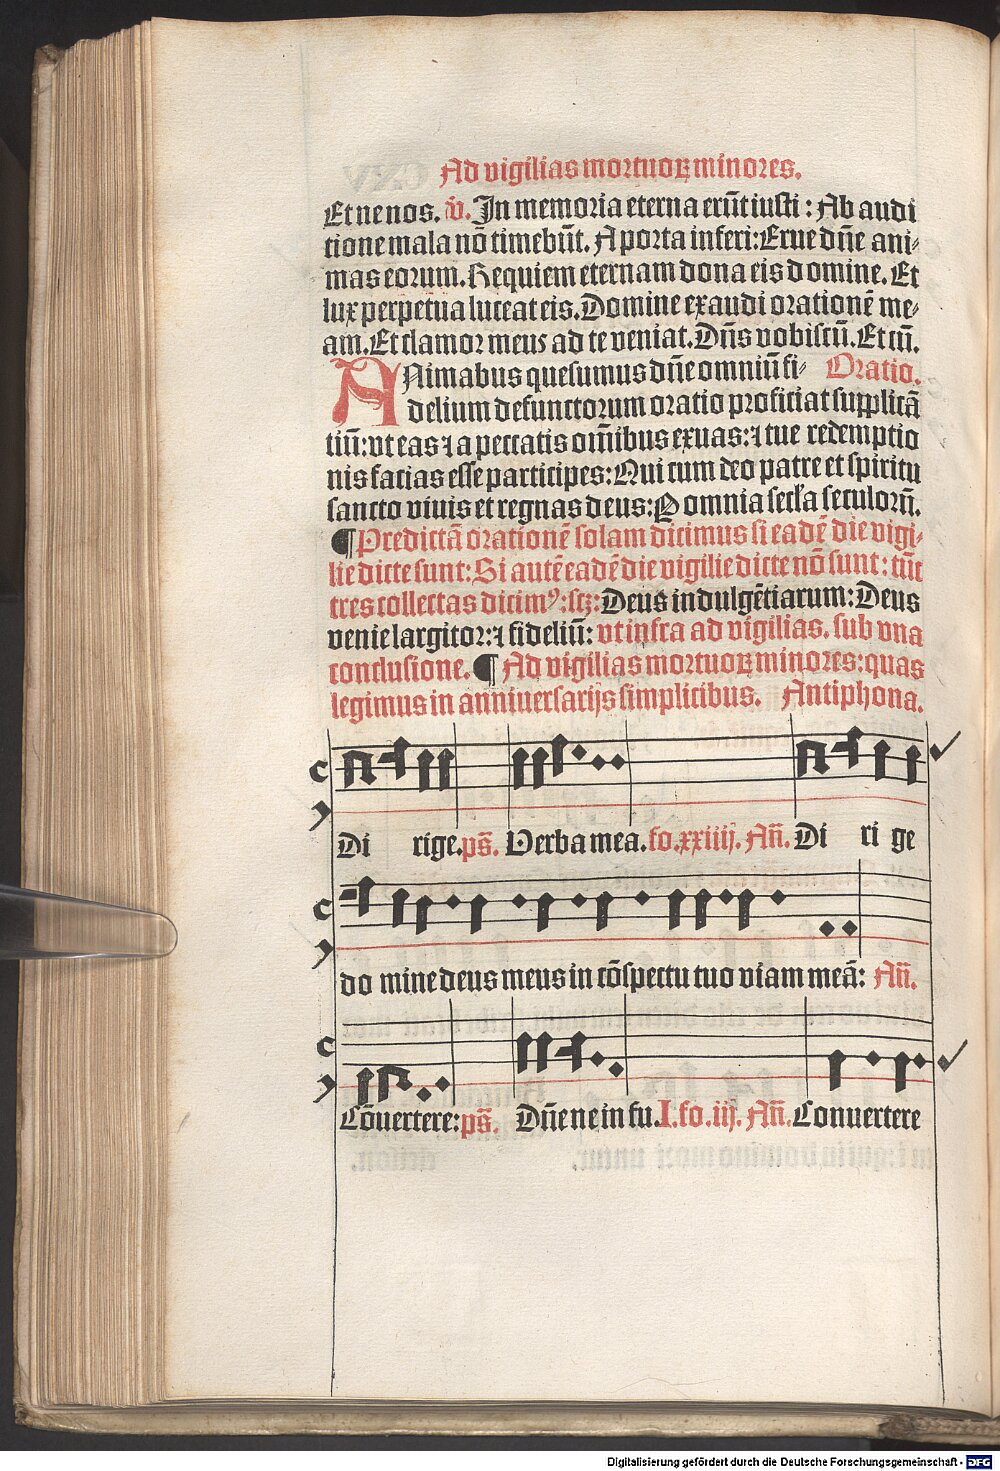 Ad vigilias mortuoꝝ minores.
Et ne nos. v̄. In memoria eterna erūt iusti : Ab audi
tione mala nō timebūt. A porta inferi: Erue dn̄e ani⸗
mas eorum. Requiem eternam dona eis domine. Et
lux perpetua luceat eis. Domine exaudi orationē me⸗
am. Et clamor meus ad te veniat. Dn̄s vobiscū. Et cū.
ANimabus quesumus dn̄e omniū fi⸗ Oratio.
delium defunctorum oratio proficiat supplicā
tiū: vt eas ⁊ a peccatis om̄ibus exuas: ⁊ tue redemptio
nis facias esse participes: Qui cum deo patre et spiritu
sancto viuis et regnas deus: P omnia secła seculorū.
¶ Predictā orationē solam dicimus si eadē die vigi⸗
lie dicte sunt: Si autē eadē die vigilie dicte nō sunt: tūc
tres collectas dicimꝰ: scꝫ: Deus indulgētiarum: Deus
venie largitor: ⁊ fideliū: vt infra ad vigilias. sub vna
conclusione. ¶ Ad vigilias mortuoꝝ minores: quas
legimus in anniuersarijs simplicibus. Antiphona.
c
Di rige. ps̄. Verba mea. fo. xxiiij. An̄. Di ri ge
c
do mine deus meus in cōspectu tuo viam meā: An̄.
c
Cōuertere: ps̄. Dn̄e ne in fu. I. fo. iij. An̄. Conuertere
Digitalisierung gefördert durch die Deutsche Forschungsgemeinschaft - DFG